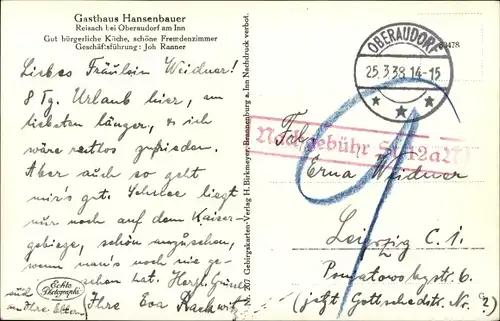 Gasthaus Hansenbauer
Reisach bei Oberaudorf am Inn
Gut bürgerliche Küche, schöne Fremdenzimmer
Geschäftsführung: Joh Ranner
Liebes Fräulein Weidner!
8 Tg. Urlaub hier, am
liebsten länger, & ich
wäre restlos zufrieden.
Aber auch so geht
mir's gut. Schnee liegt
nur noch auf dem Kaiser-
gebirge, schön anzusehen,
wenn man's noch nie ge-
sehen hat. Herzl. Grüsse
Ihre Eva Rackwitz
und
Ihre Eltern
Echte
Photographie
Z. 207 Gebirgskarten-Verlag H. Birkmeyer, Brannenburg a. Inn Nachdruck verbot.
OBERAUDORF
25.3.38 14-15
Nachgebühr
Frl.
Erna Weidner
Leipzig C. 1.
Poniatowskystr. 6.
(jetzt Gottschedstr. Nr.